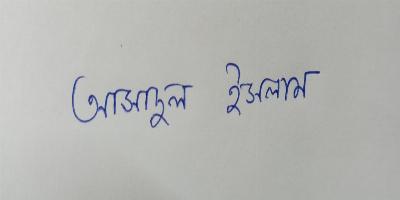 আসাদুল ইসলাম